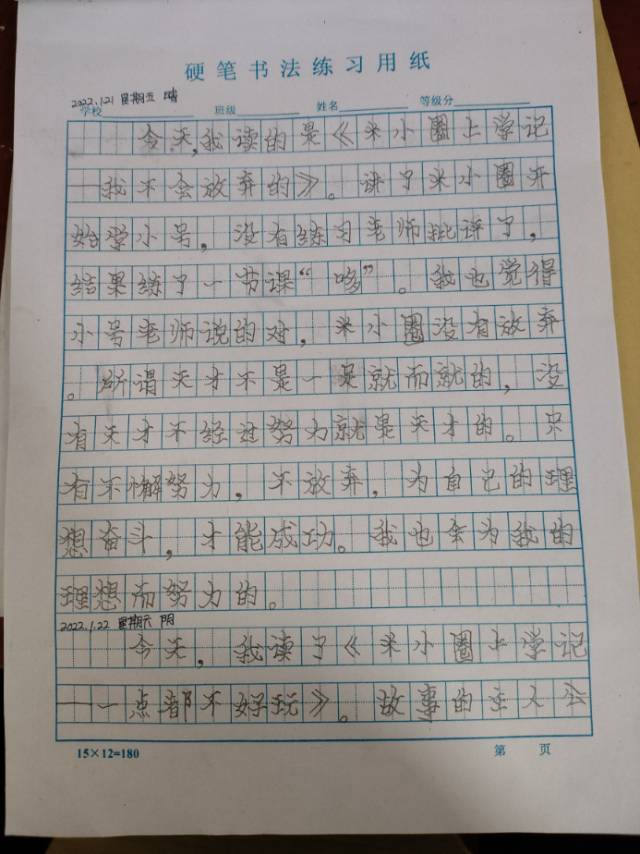 硬笔书法练习用纸
2022.1.21 星期五 晴
学校 班级 姓名 等级分
今天,我读的是《米小圈上学记
——我不会放弃的》。讲了米小圈开
始学小号，没有练习老师批评了，
结果练了一节课“哆”。我也觉得
小号老师说的对，米小圈没有放弃
。所谓天才不是一是就而就的，没
有天才不经过努力就是天才的。只
有不懈努力，不放弃，为自己的理
想奋斗，才能成功。我也会为我的
理想而努力的。
2022.1.22 星期六 阴
今天，我读了《米小圈上学记
——一点都不好玩》。故事的主人公
15×12=180 第 页